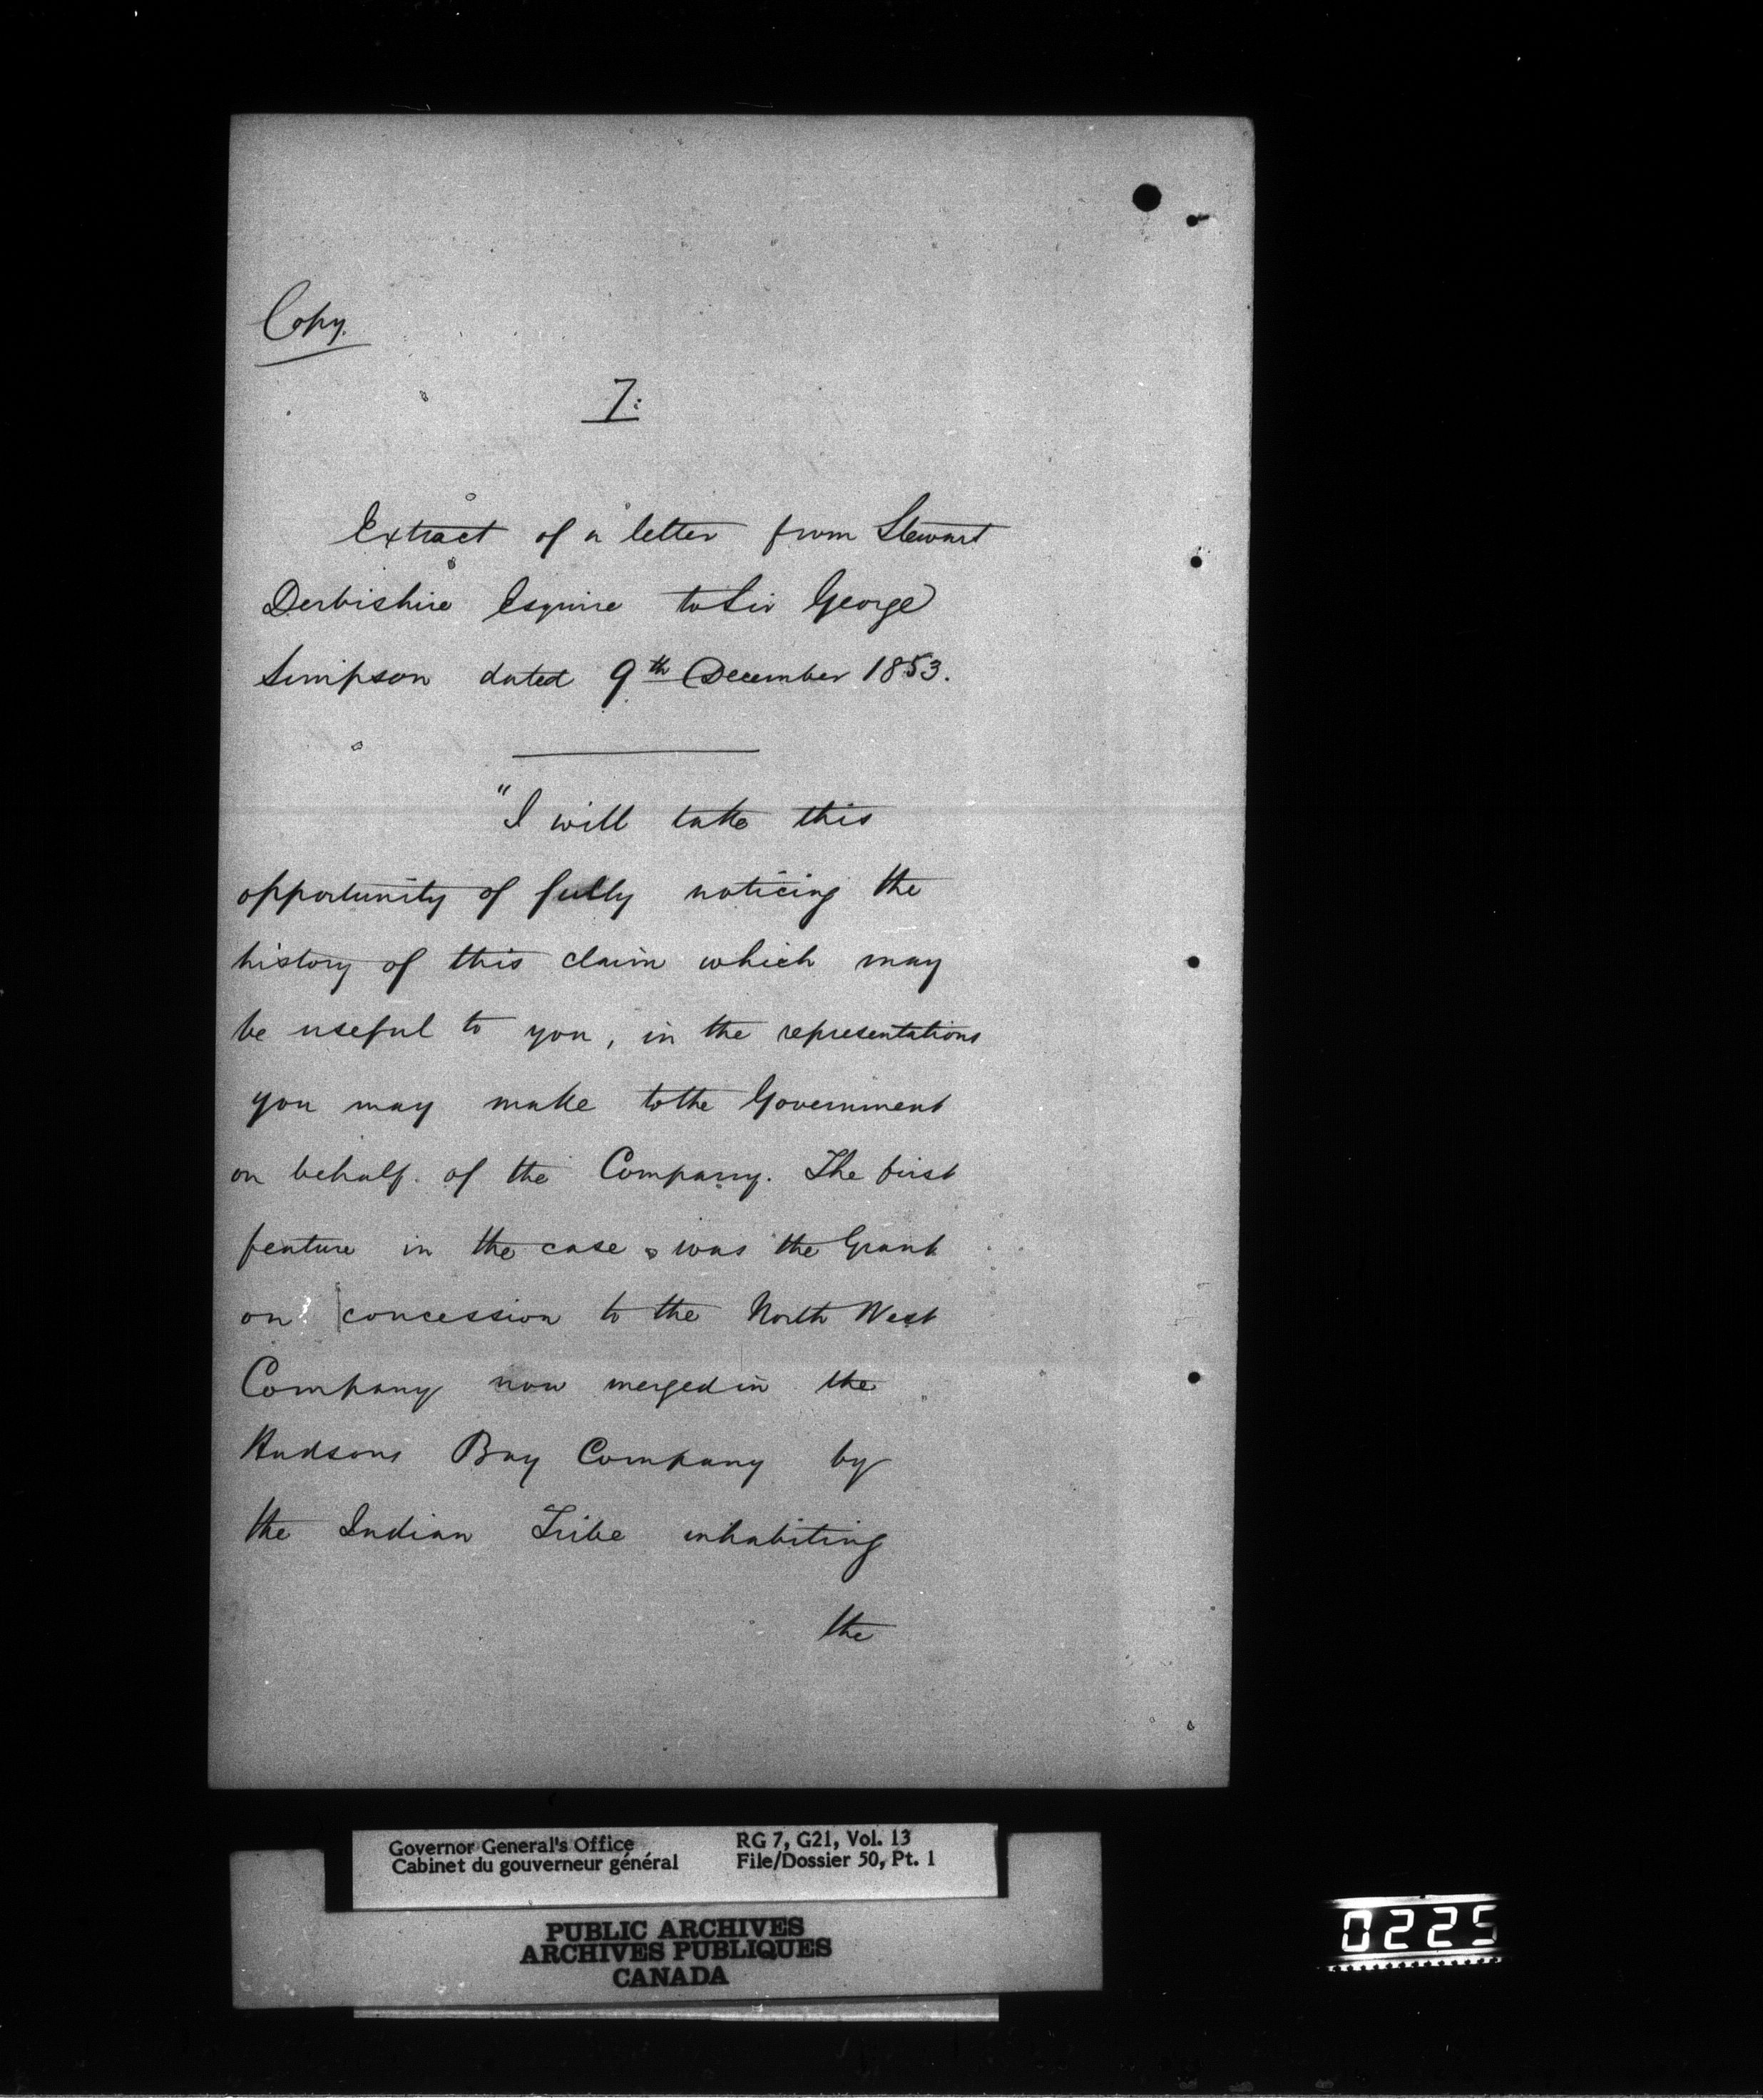 Copy.
7:
Extract of a letter from Stewart
Derbishire Esquire to Sir George
Simpson dated 9th December 1853.
"I will take this
opportunity of fully noticing the
history of this claim which may
be useful to you, in the representations
you may make to the Government
on behalf of the Company. The first
feature in the case was the Grant
on concession to the North West
Company now merged in the
Hudsons Bay Company by
the Indian Tribe inhabiting
the
Governor General's Office
Cabinet du gouverneur général
RG 7, G21, Vol. 13
File/Dossier 50, Pt. 1
PUBLIC ARCHIVES
ARCHIVES PUBLIQUES
CANADA
0225